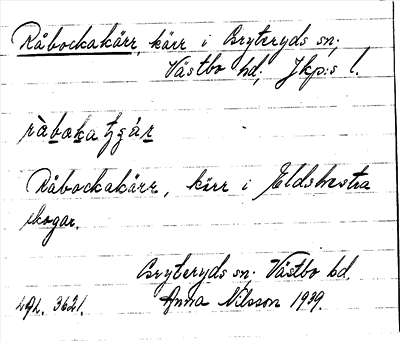 Råbockakärr, kärr i Bryteryds sn;
Västbo hd; Jkp:s l.
Råbockakärr, kärr i Eldshestra
skogar.
Bryteryds sn. Västbo hd.
Anna Nilsson 1939.
3621.